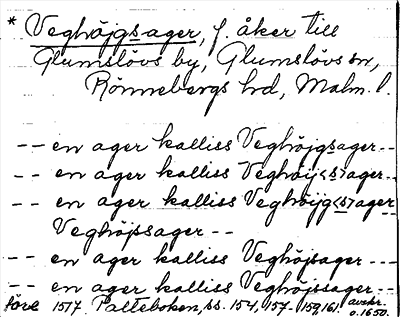 * Veghöjgsager, f. åker till
Glumslövs by, Glumslövs sn,
Rönnebergs hd, Malm. l.
-- en ager kalliss Veghöjgsager --
-- en ager kalliss Veghöij<s>ager --
-- en ager kalliss Veghöijg<s>ager
Veghöjsager --
-- en ager kalliss Veghöjsager ---
-- en ager kalliss Veghöjsager --
före 1517. Palteboken, ss. 154, 157-159, 161. avskr. o. 1650.